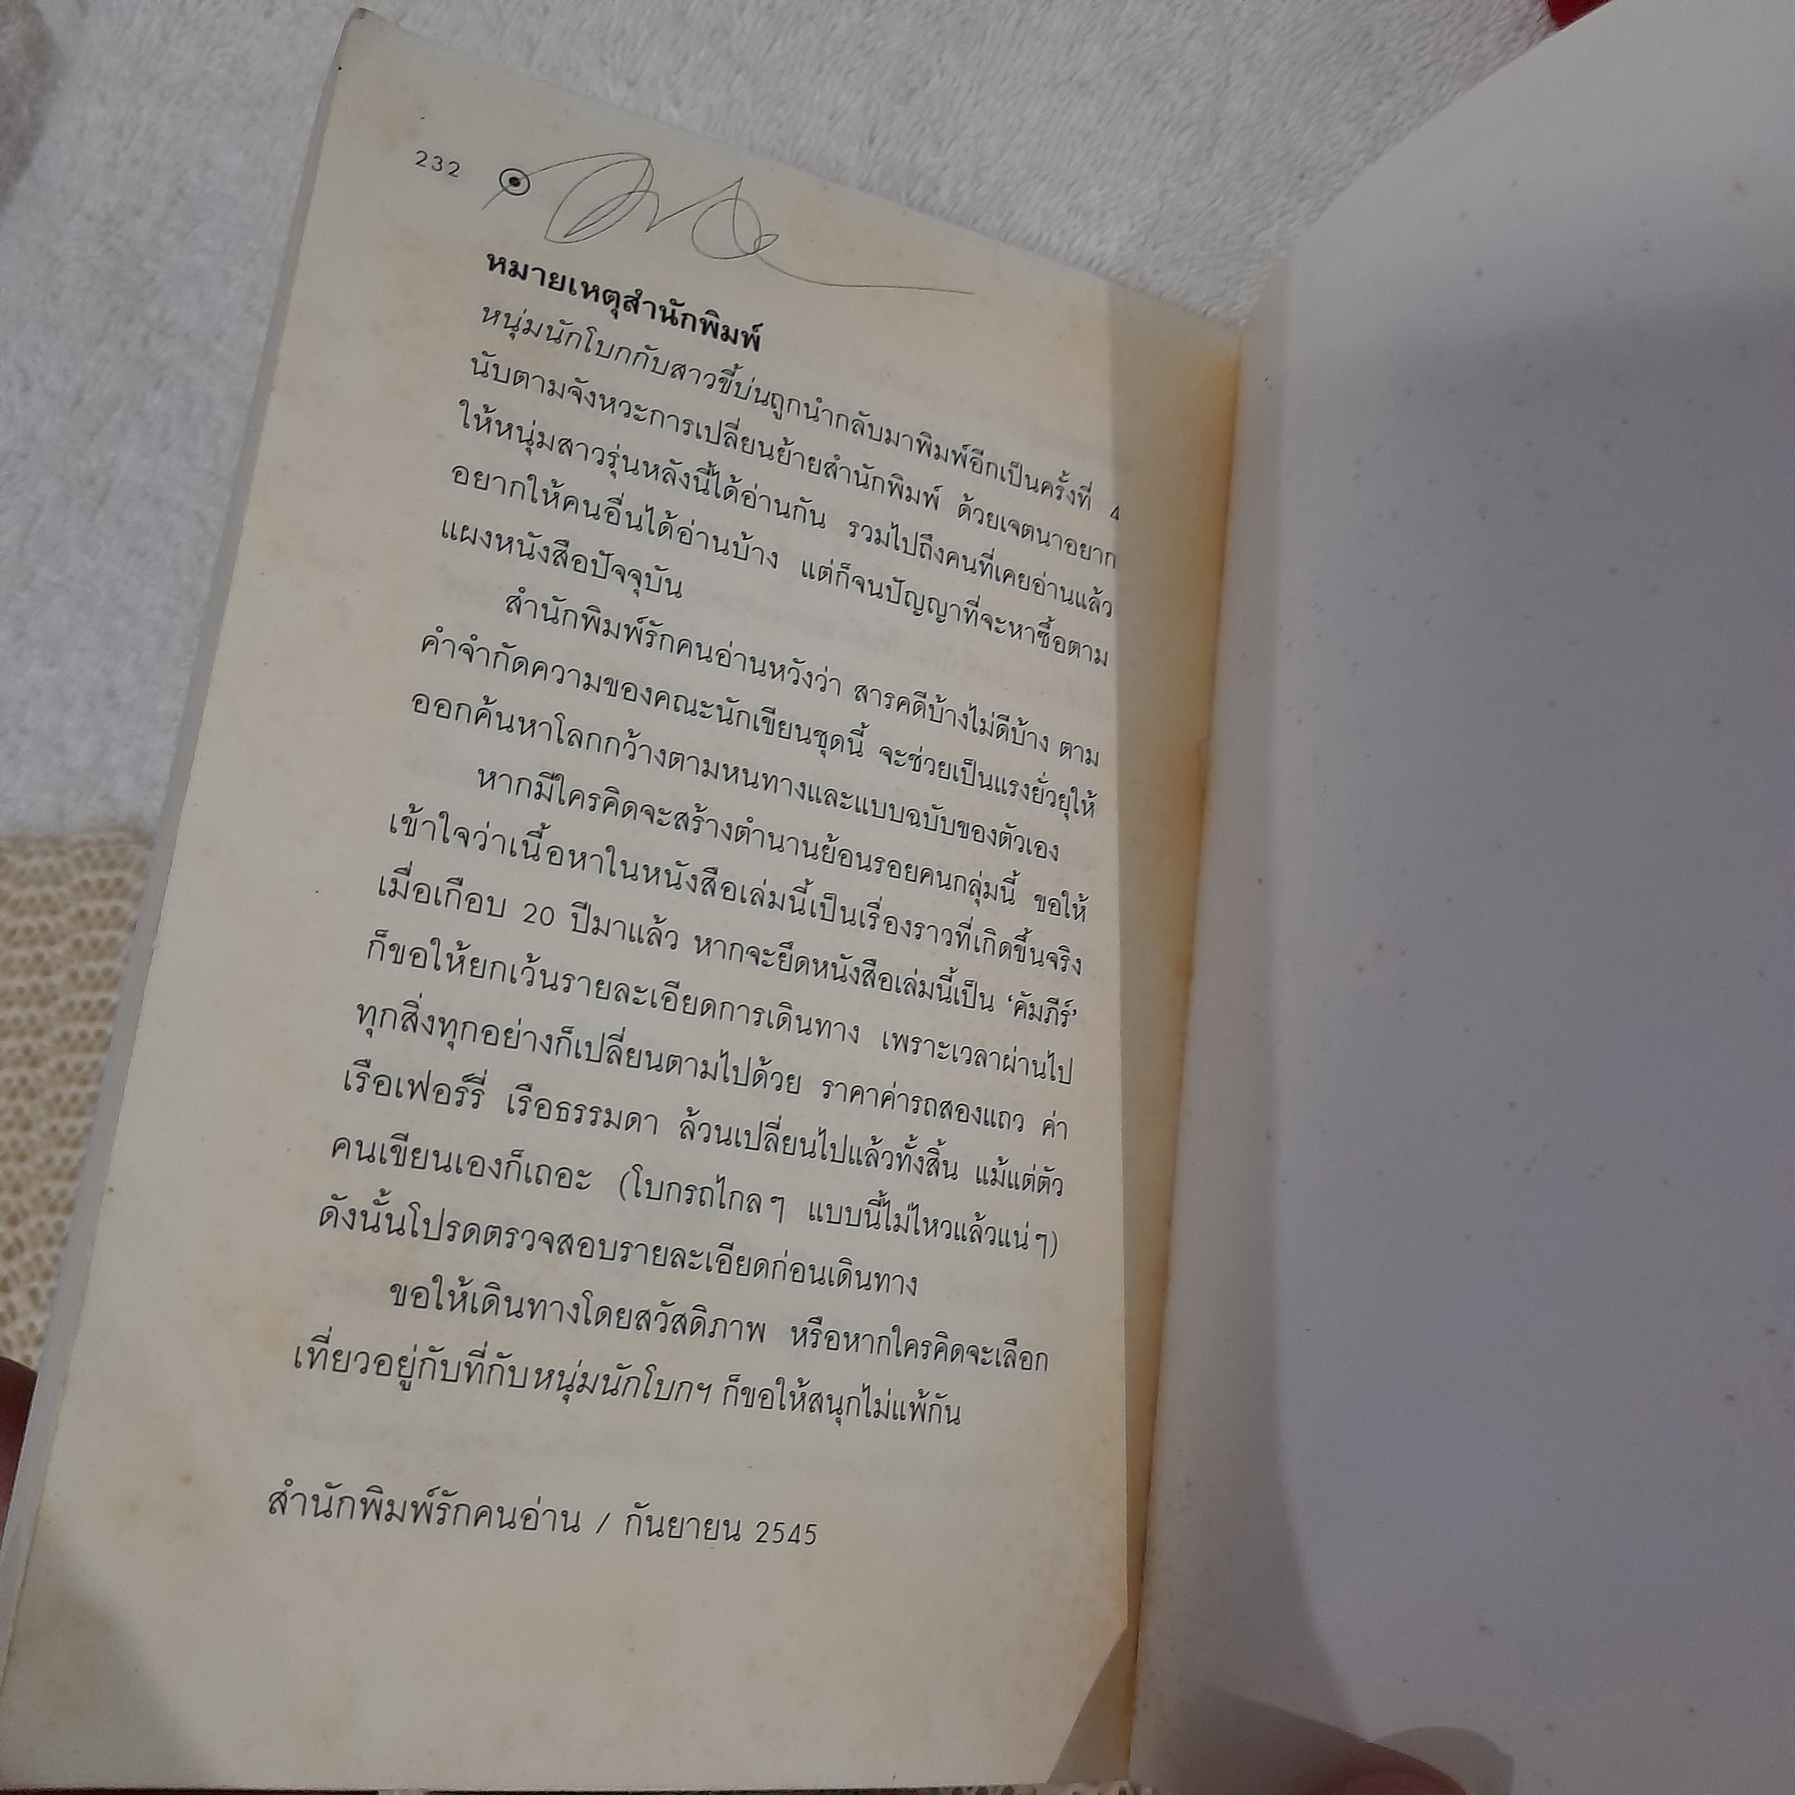 232
หมายเหตุสำนักพิมพ์
หนุ่มนักโบกกับสาวขี้บ่นถูกนำกลับมาพิมพ์อีกเป็นครั้งที่ 4
นับตามจังหวะการเปลี่ยนย้ายสำนักพิมพ์ ด้วยเจตนาอยาก
ให้หนุ่มสาวรุ่นหลังนี้ได้อ่านกัน รวมไปถึงคนที่เคยอ่านแล้ว
อยากให้คนอื่นได้อ่านบ้าง แต่ก็จนปัญญาที่จะหาซื้อตาม
แผงหนังสือปัจจุบัน
สำนักพิมพ์รักคนอ่านหวังว่า สารคดีบ้างไม่ดีบ้าง ตาม
คำจำกัดความของคณะนักเขียนชุดนี้ จะช่วยเป็นแรงยั่วยุให้
ออกค้นหาโลกกว้างตามหนทางและแบบฉบับของตัวเอง
หากมีใครคิดจะสร้างตำนานย้อนรอยคนกลุ่มนี้ ขอให้
เข้าใจว่าเนื้อหาในหนังสือเล่มนี้เป็นเรื่องราวที่เกิดขึ้นจริง
เมื่อเกือบ 20 ปีมาแล้ว หากจะยึดหนังสือเล่มนี้เป็น ‘คัมภีร์’
ก็ขอให้ยกเว้นรายละเอียดการเดินทาง เพราะเวลาผ่านไป
ทุกสิ่งทุกอย่างก็เปลี่ยนตามไปด้วย ราคาค่ารถสองแถว ค่า
เรือเฟอร์รี่ เรือธรรมดา ล้วนเปลี่ยนไปแล้วทั้งสิ้น แม้แต่ตัว
คนเขียนเองก็เถอะ (โบกรถไกลๆ แบบนี้ไม่ไหวแล้วแน่ๆ)
ดังนั้นโปรดตรวจสอบรายละเอียดก่อนเดินทาง
ขอให้เดินทางโดยสวัสดิภาพ หรือหากใครคิดจะเลือก
เที่ยวอยู่กับที่กับหนุ่มนักโบกฯ ก็ขอให้สนุกไม่แพ้กัน
สำนักพิมพ์รักคนอ่าน / กันยายน 2545